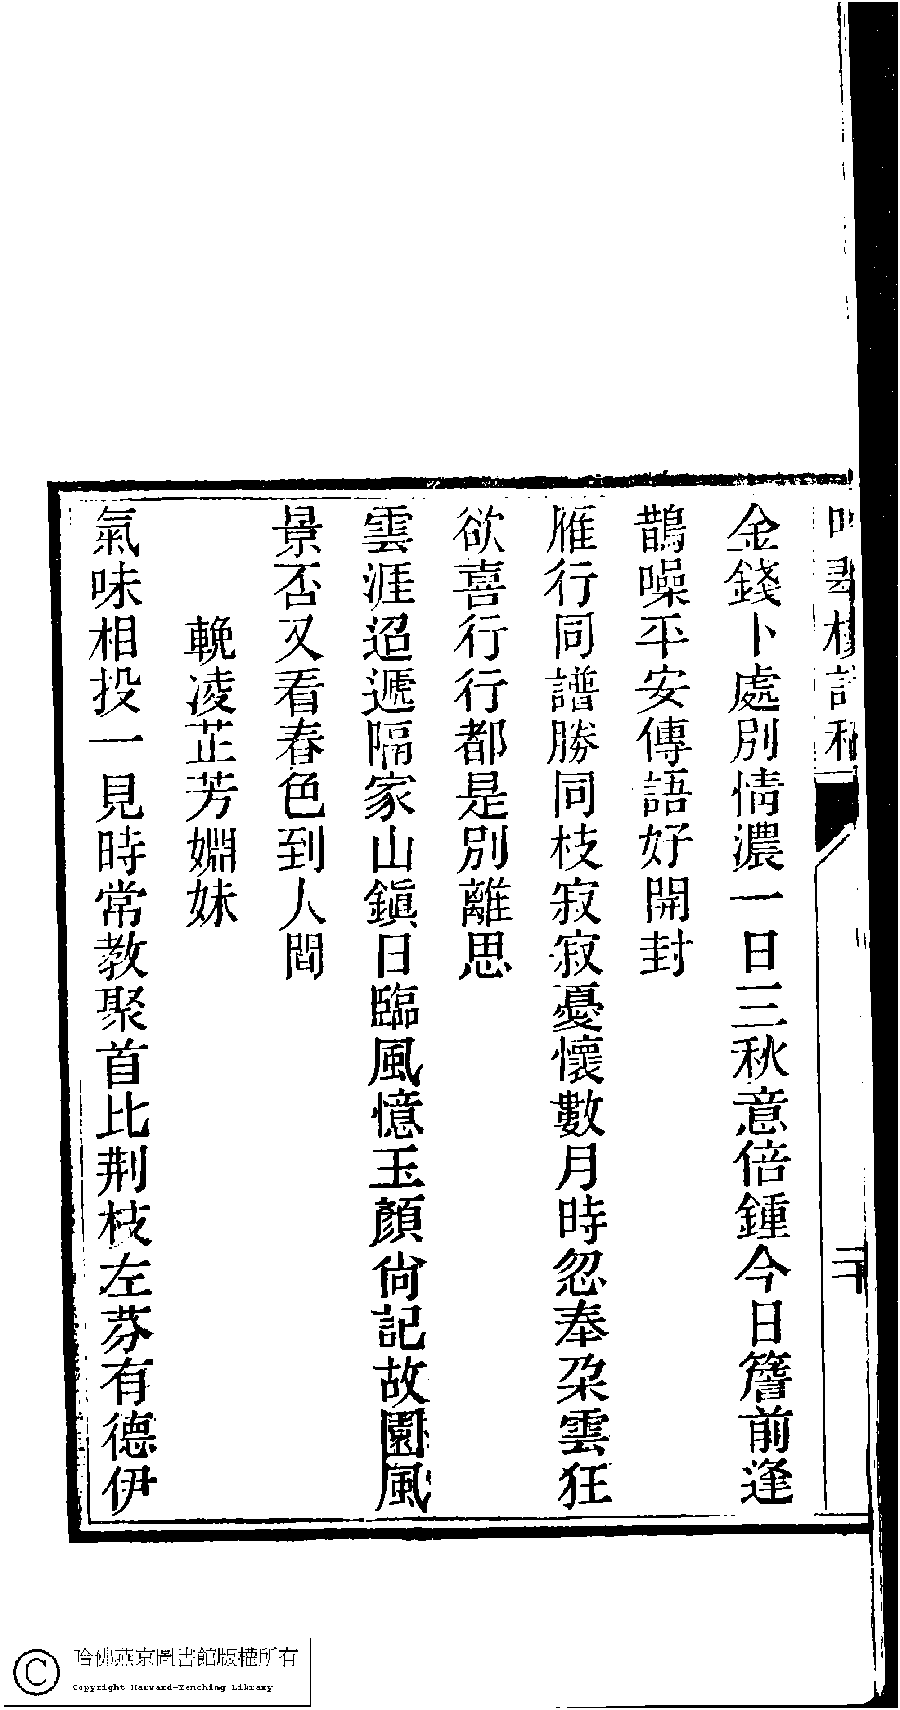 金錢卜處別情濃一日三秋意倍鍾今日簷前逢
鵲噪平安傳語好開封
雁行同譜勝同枝寂寂憂懷數月時忽奉朶雲狂
欲喜行行都是別離思
雲涯迢遞隔家山鎭日臨風憶玉顏尙記故園風
景否又看春色到人間
輓凌芷芳嫺妹
氣味相投一見時常教聚首比荆枝左芬有德伊
哈佛燕京圖書館版權所有
Copyright Harvard-Yenching Library